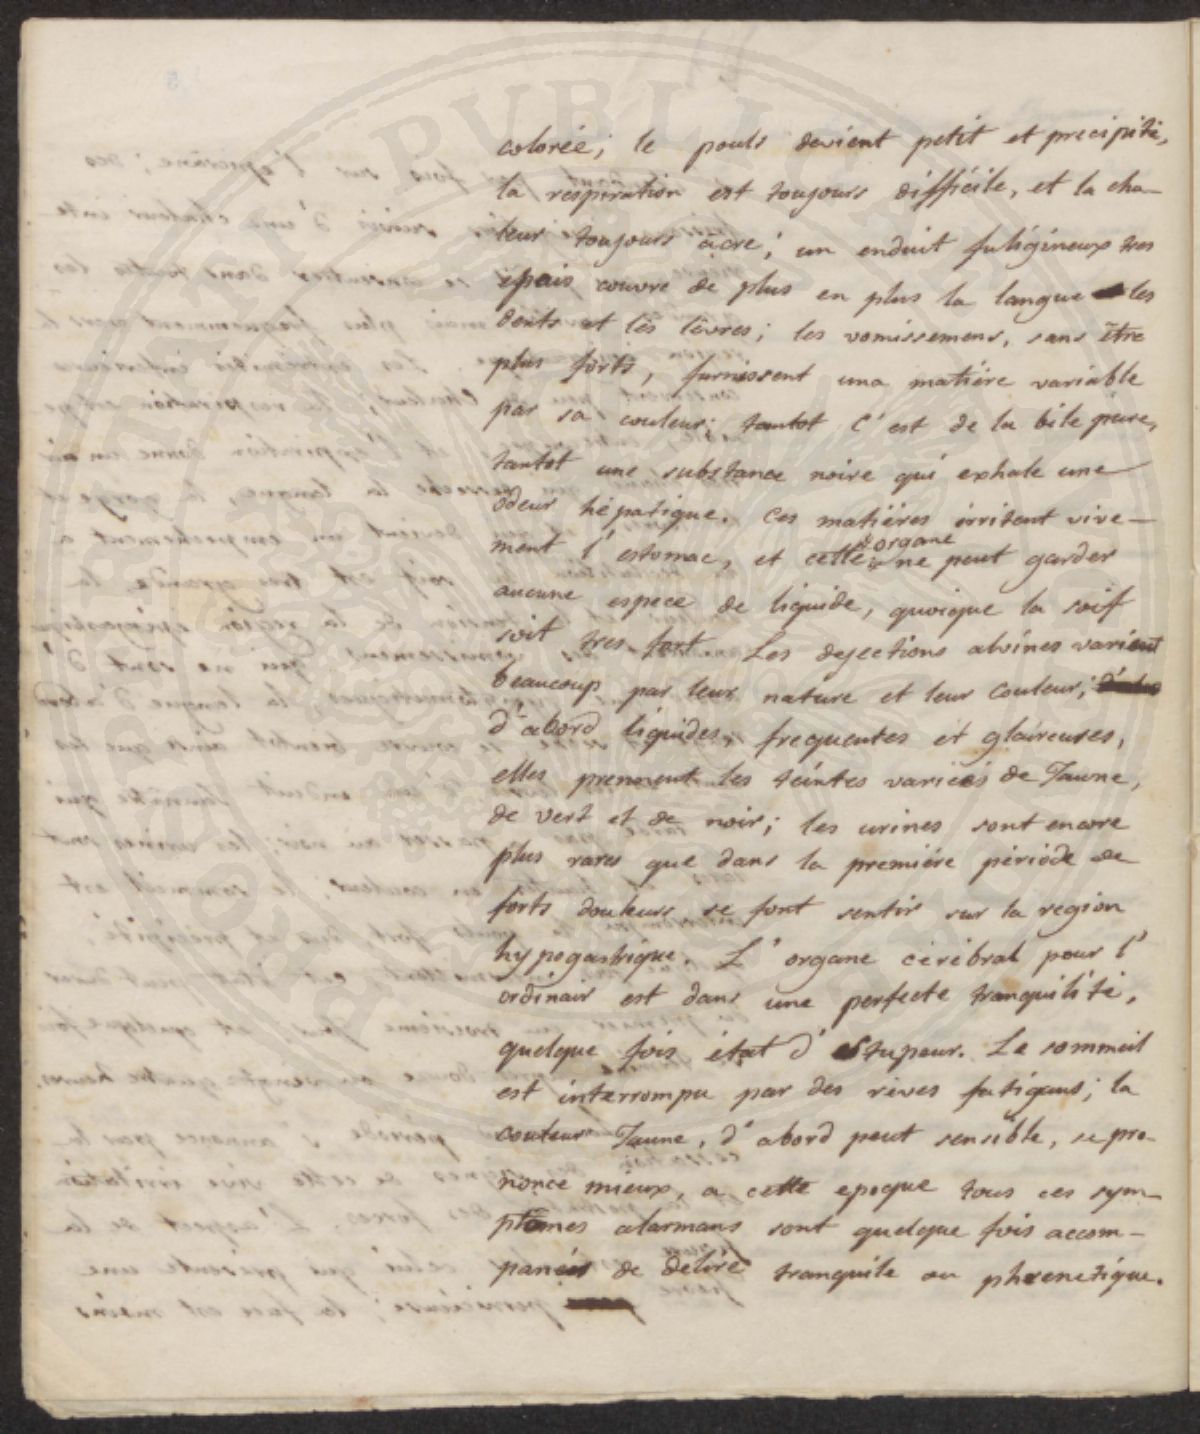 colorée; le pouls devient petit et precipité,
la respiration est toujours difficile, et la cha-
leur toujours acre; un enduit fuligineux tres
epais couvre de plus en plus la langue les
dents et les lèvres; les vomissemens, sans être
plus forts, furnissent una matiére variable
par sa couleur; tantot c'est de la bile pure,
tantot une substance noire qui exhale une
odeur hépatique. Ces matiéres irritent vive-
ment l'estomac, et cette organe ne peut garder
aucune espece de liquide, quoique la soif
soit tres fort. Les dejections alvines varient
beaucoup par leur nature et leur couleur;
d'abord liquides, frequentes et glaireuses,
elles prennent les teintes variées de Jaune,
de vert et de noir; les urines sont encore
plus rares que dans la premiére période de
forts douleurs se font sentir sur la region
hypogastrique. L'organe cérébral pour l'
ordinair est dans une perfecte tranquilité,
quelque fois état d'stupeur. Le sommeil
est interrompu par des rèves fatigans; la
couleur Jaune, d'abord peut sensible, se pro-
nonce mieux, a cette epoque tous ces sym-
ptomes alarmans sont quelque fois accom-
panées de delire tranquile ou phrenetique.